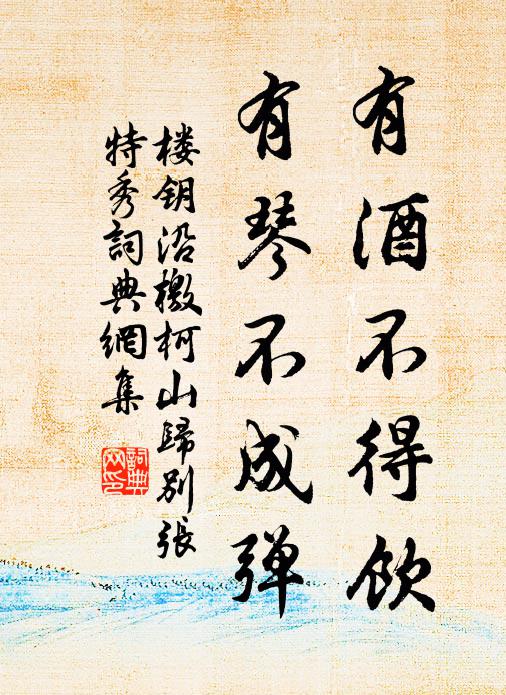 有酒不得饮
有琴不成弹
楼钥沿檄柯山歸别張
特秀詞典網集
詞典
网印